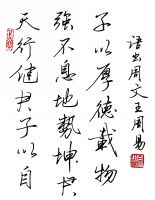 天行健君子以自
強不息地勢坤君
子以厚德載物
语出周文王周易